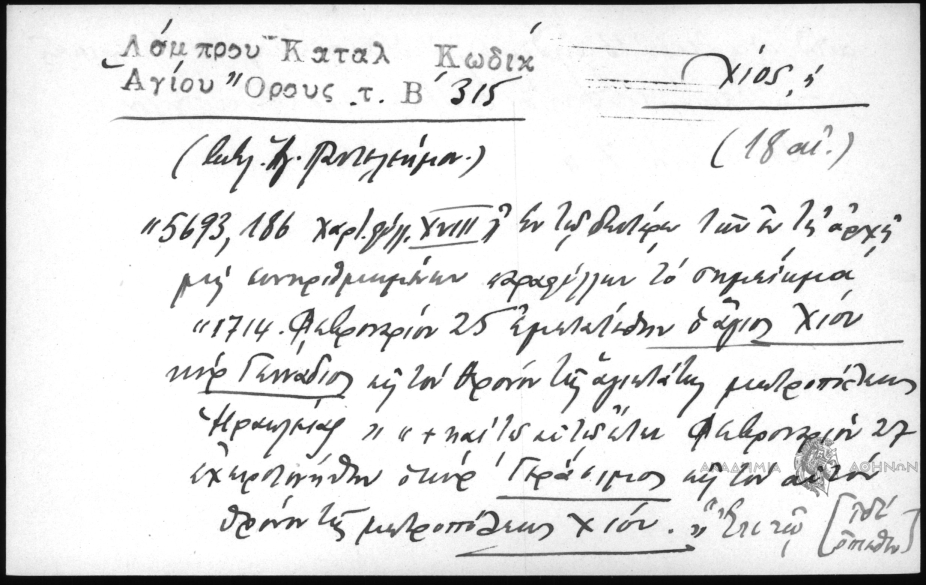 Λάμπρου Καταλ Κωδίκ
Ἁγίου Ὄρους τ. Β΄ 315
Χίος, ἡ
(18 αἰ.)
(Ἐκκλ. Ἁγ. Παντελεήμον.)
"5693, 186 χαρτ. φύλ. XVIII" Ἐν τῷ δευτέρῳ τῶν ἐν τῇ ἀρχῇ
μὴ συνηριθμημένων παραφύλλων τὸ σημείωμα
"1714. Φεβρουαρίου 25 ἐμετατέθην ὁ ἅγιος Χίου
κύρ Γεννάδιος εἰς τὸν θρόνον τῆς ἁγιωτάτης μητροπόλεως
Ἡρακλείας" "+ καὶ τῷ αὐτῷ ἔτει Φεβρουαρίου 27
ἐχειροτονήθην ὁ κύρ Γεράσιμος εἰς τὸν αὐτὸν
θρόνον τῆς μητροπόλεως Χίου." Ἐπὶ τῷ [ἰδὲ
ὄπισθεν]
ΑΚΑΔΗΜΙΑ ΑΘΗΝΩΝ